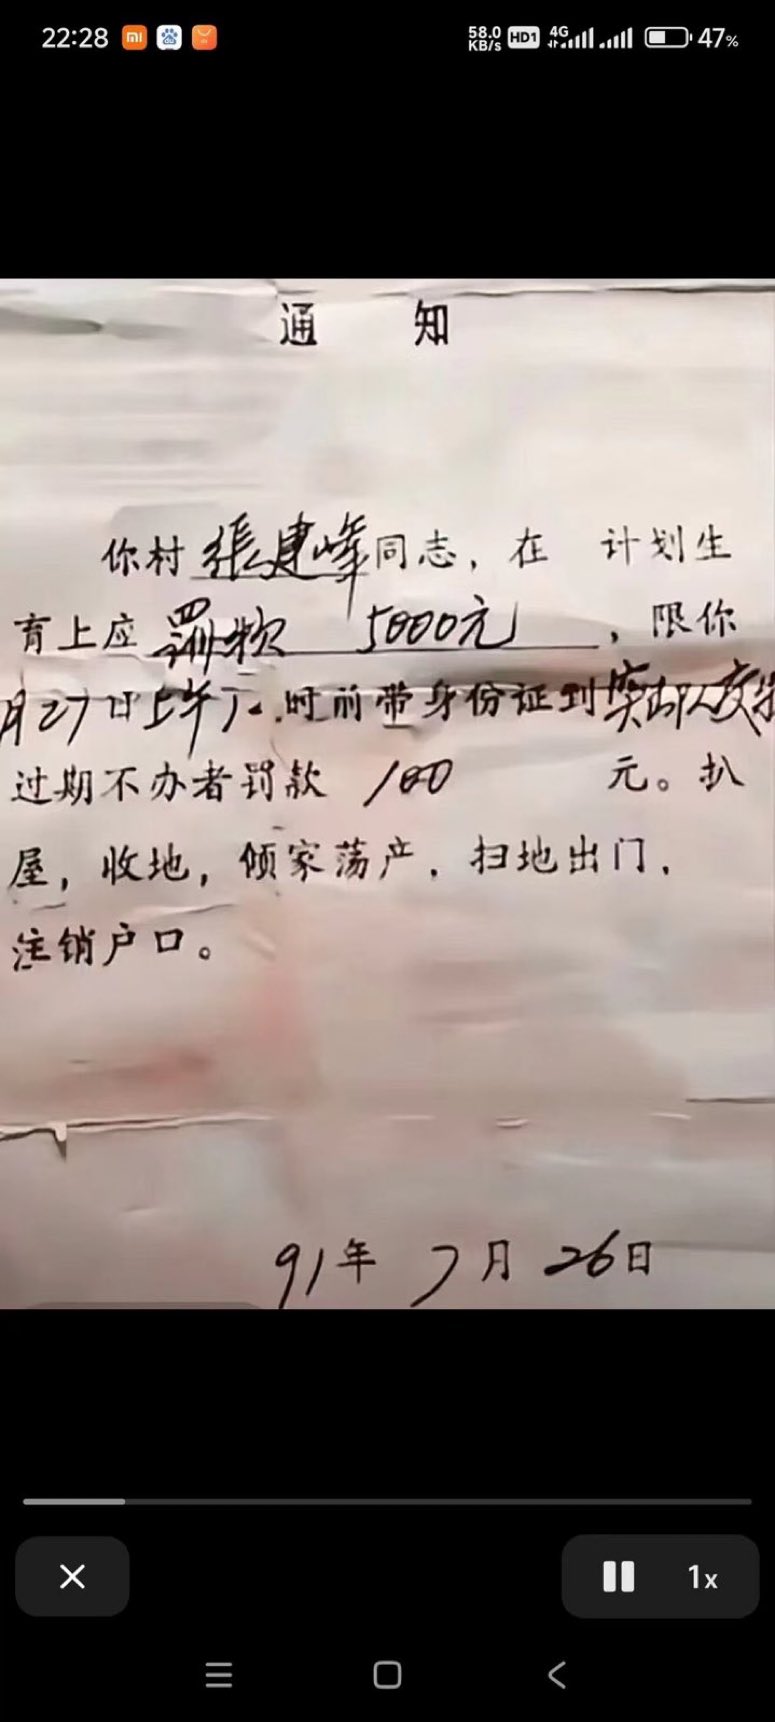 22:28
58.0 KB/s HD1 4G 47%
通 知
你村张建峰同志，在 计划生
育上应罚款 5000元，限你
月27日上午 时前带身份证到突击队交
过期不办者罚款 100 元。扒
屋，收地，倾家荡产．扫地出门．
注销户口。
91年 7月 26日
1x